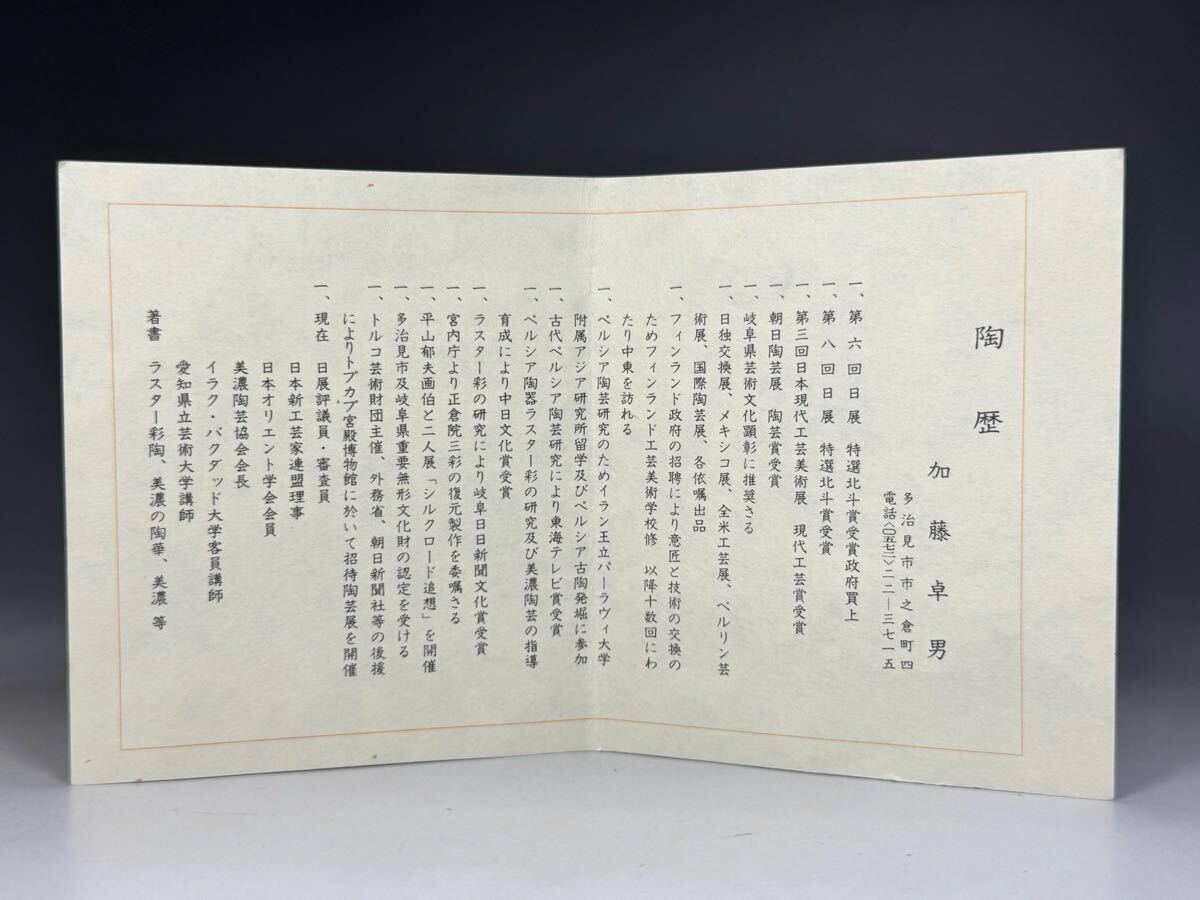 陶歴
加藤卓男
多治見市市之倉町四
電話〈〇五七三〉二二―三七一五
一、第六回日展 特選北斗賞受賞政府買上
一、第八回日展 特選北斗賞受賞
一、第三回日本現代工芸美術展 現代工芸賞受賞
一、朝日陶芸展 陶芸賞受賞
一、岐阜県芸術文化顕彰に推奨さる
一、日独交換展、メキシコ展、全米工芸展、ベルリン芸
術展、国際陶芸展、各依嘱出品
一、フィンランド政府の招聘により意匠と技術の交換の
ためフィンランド工芸美術学校修 以降十数回にわ
たり中東を訪れる
一、ペルシア陶芸研究のためイラン王立パーラヴィ大学
附属アジア研究所留学及びペルシア古陶発堀に参加
一、古代ペルシア陶芸研究により東海テレビ賞受賞
一、ペルシア陶器ラスター彩の研究及び美濃陶芸の指導
育成により中日文化賞受賞
一、ラスター彩の研究により岐阜日日新聞文化賞受賞
一、宮内庁より正倉院三彩の復元製作を委嘱さる
一、平山郁夫画伯と二人展「シルクロード追想」を開催
一、多治見市及岐阜県重要無形文化財の認定を受ける
一、トルコ芸術財団主催、外務省、朝日新聞社等の後援
によりトプカプ宮殿博物館に於いて招待陶芸展を開催
一、現在 日展評議員・審査員
日本新工芸家連盟理事
日本オリエント学会会員
美濃陶芸協会会長
イラク・バクダッド大学客員講師
愛知県立芸術大学講師
著書 ラスター彩陶、美濃の陶華、美濃 等